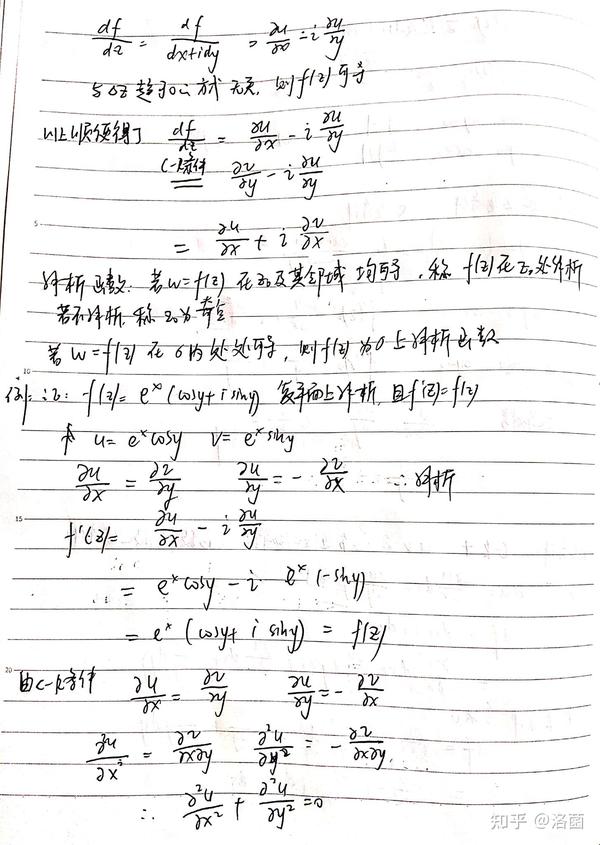 df/dz = df/dx+idy = ∂u/∂x - i ∂u/∂y
与Δz趋于0方式无关, 则f(z)可导
以上顺便得了 df/dz = ∂u/∂x - i ∂u/∂y
C-R条件 ∂v/∂y - i ∂u/∂y
5
= ∂u/∂x + i ∂v/∂x
解析函数: 若w=f(z) 在z₀及其邻域均可导, 称f(z)在z₀处解析
若不解析, 称z₀为奇点
10
若w=f(z) 在σ内处处可导, 则f(z)为σ上解析函数
例: 证: f(z)= eˣ(cosy+isiny) 复平面上解析, 且f'(z)=f(z)
u= eˣcosy v= eˣsiny
∂u/∂x = ∂v/∂y ∂u/∂y = - ∂v/∂x ∴解析
15
f'(z)= ∂u/∂x - i ∂u/∂y
= eˣcosy - i eˣ(-siny)
= eˣ(cosy+ i siny) = f(z)
20
由C-R条件 ∂u/∂x = ∂v/∂y ∂u/∂y = - ∂v/∂x
∂²u/∂x² = ∂²v/∂x∂y ∂²u/∂y² = - ∂²v/∂x∂y
∴ ∂²u/∂x² + ∂²u/∂y² =0
知乎 @洛菌